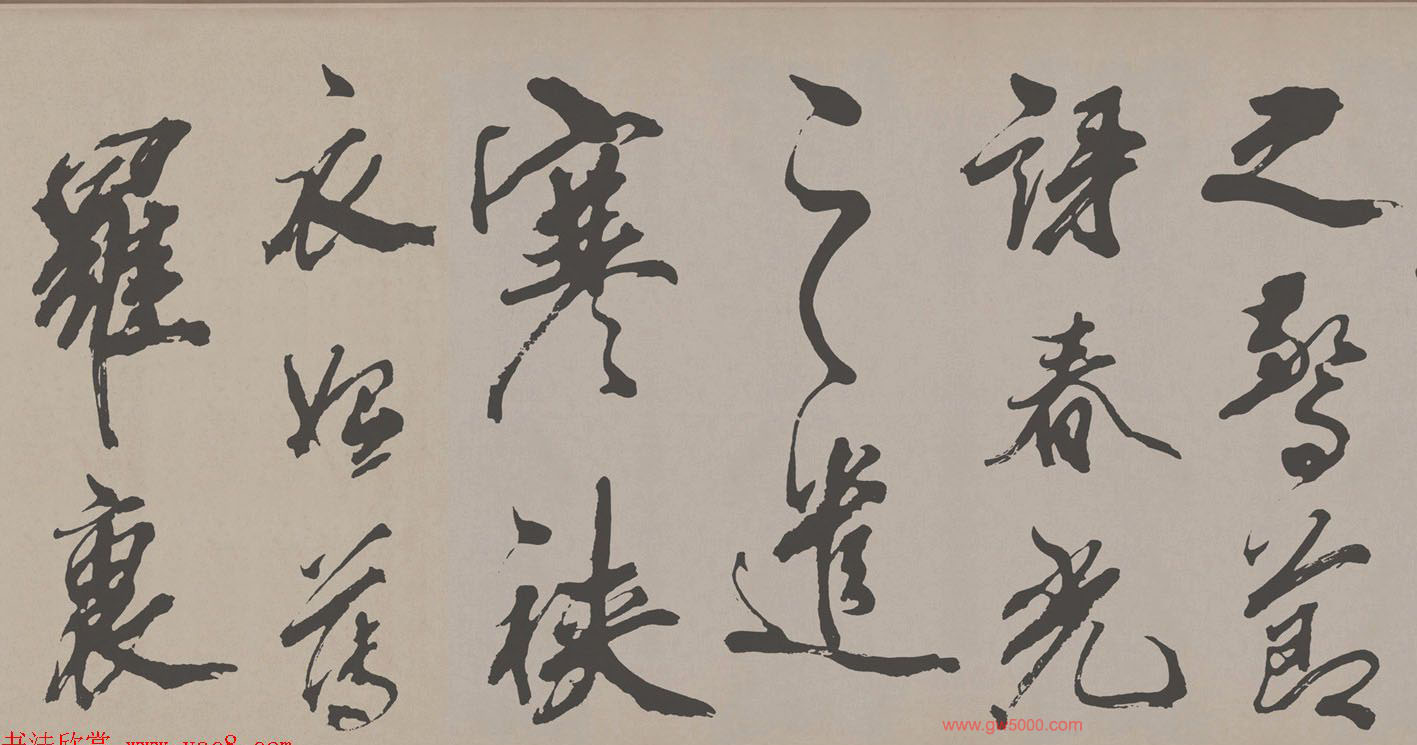 之驚節
謝春光
之遣
寒裌
衣始薄
羅裏
www.gw5000.com
书法欣赏 www.yac8.com